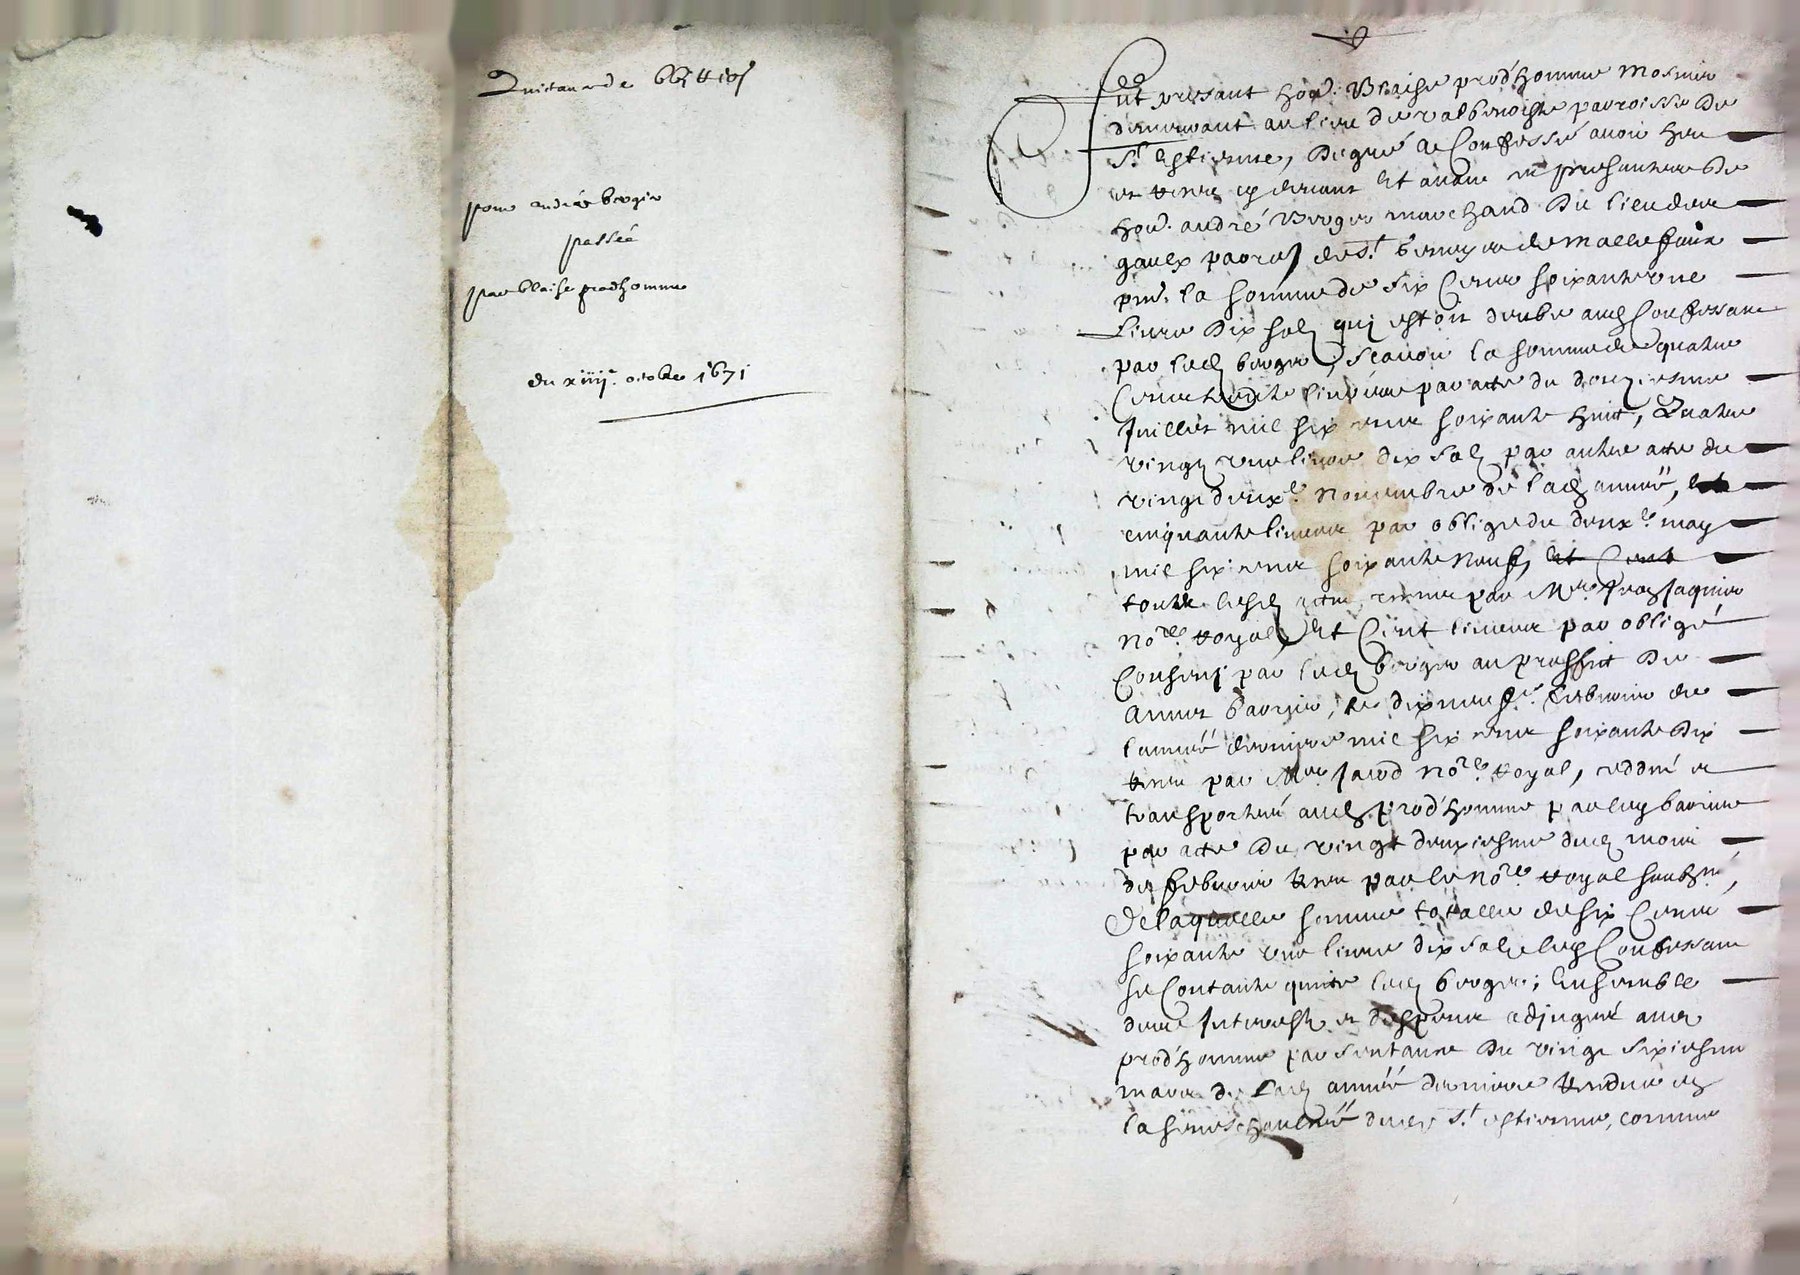 Quittance de 661 ₶ 10 s
pour andré berger
passée
par blaise prodhomme
du xiiij.e octobre 1671
Fut presant hon. Blaise prodhomme mosnier
demeurant au lieu de valbenoiste parroisse de
St estienne, de gré a Confessé avoir heu
et receu cy devant et avant ces presantes de
hon. andré Berger marchand du lieu des
gaulx parois. de St Genys de mallefaux
pnt. la somme de six Cents soixante une
Livre dix solz qui estoit deube aud Confessant
par led berger, scavoir la somme de quatre
Cents trente livres par acte du douziesme
Juillet mil six cents soixante huit, Quatre
vingtz une livre dix solz par autre acte du
vingt deux.e novembre de lad année,
cinquante livres par oblige du deux.e may
mil six cents soixante neuf, et Cent
toutz lesd actes receus par Me Jaquier
no.re royal, et Cent livres par oblige
Consenty par led berger au proffit de
Annet bavrier, le dixneuf.e febvrier de
l'année derniere mil six cents soixante dix
receu par Me Jacod no.re royal, ceddée et
transportée aud prodhomme par led bavrier
par acte du vingt deuxiesme dud mois
de febvrier receu par le no.re royal soubzne,
De laquelle somme totalle de six Cents
soixante une livre dix solz led Confessant
se Contante quitte led berger; Ensemble
des Interestz et despens adjugés aud
prodhomme par sentance du vingt sixiesme
mars de lad année derniere rendue en
la seneschaulcée dud St estienne, comme